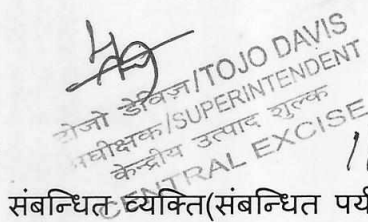 टोजो डेविज़/TOJO DAVIS
अधीक्षक/SUPERINTENDENT
केन्द्रीय उत्पाद शुल्क
CENTRAL EXCISE
संबन्धित व्यक्ति(संबन्धित पर्य